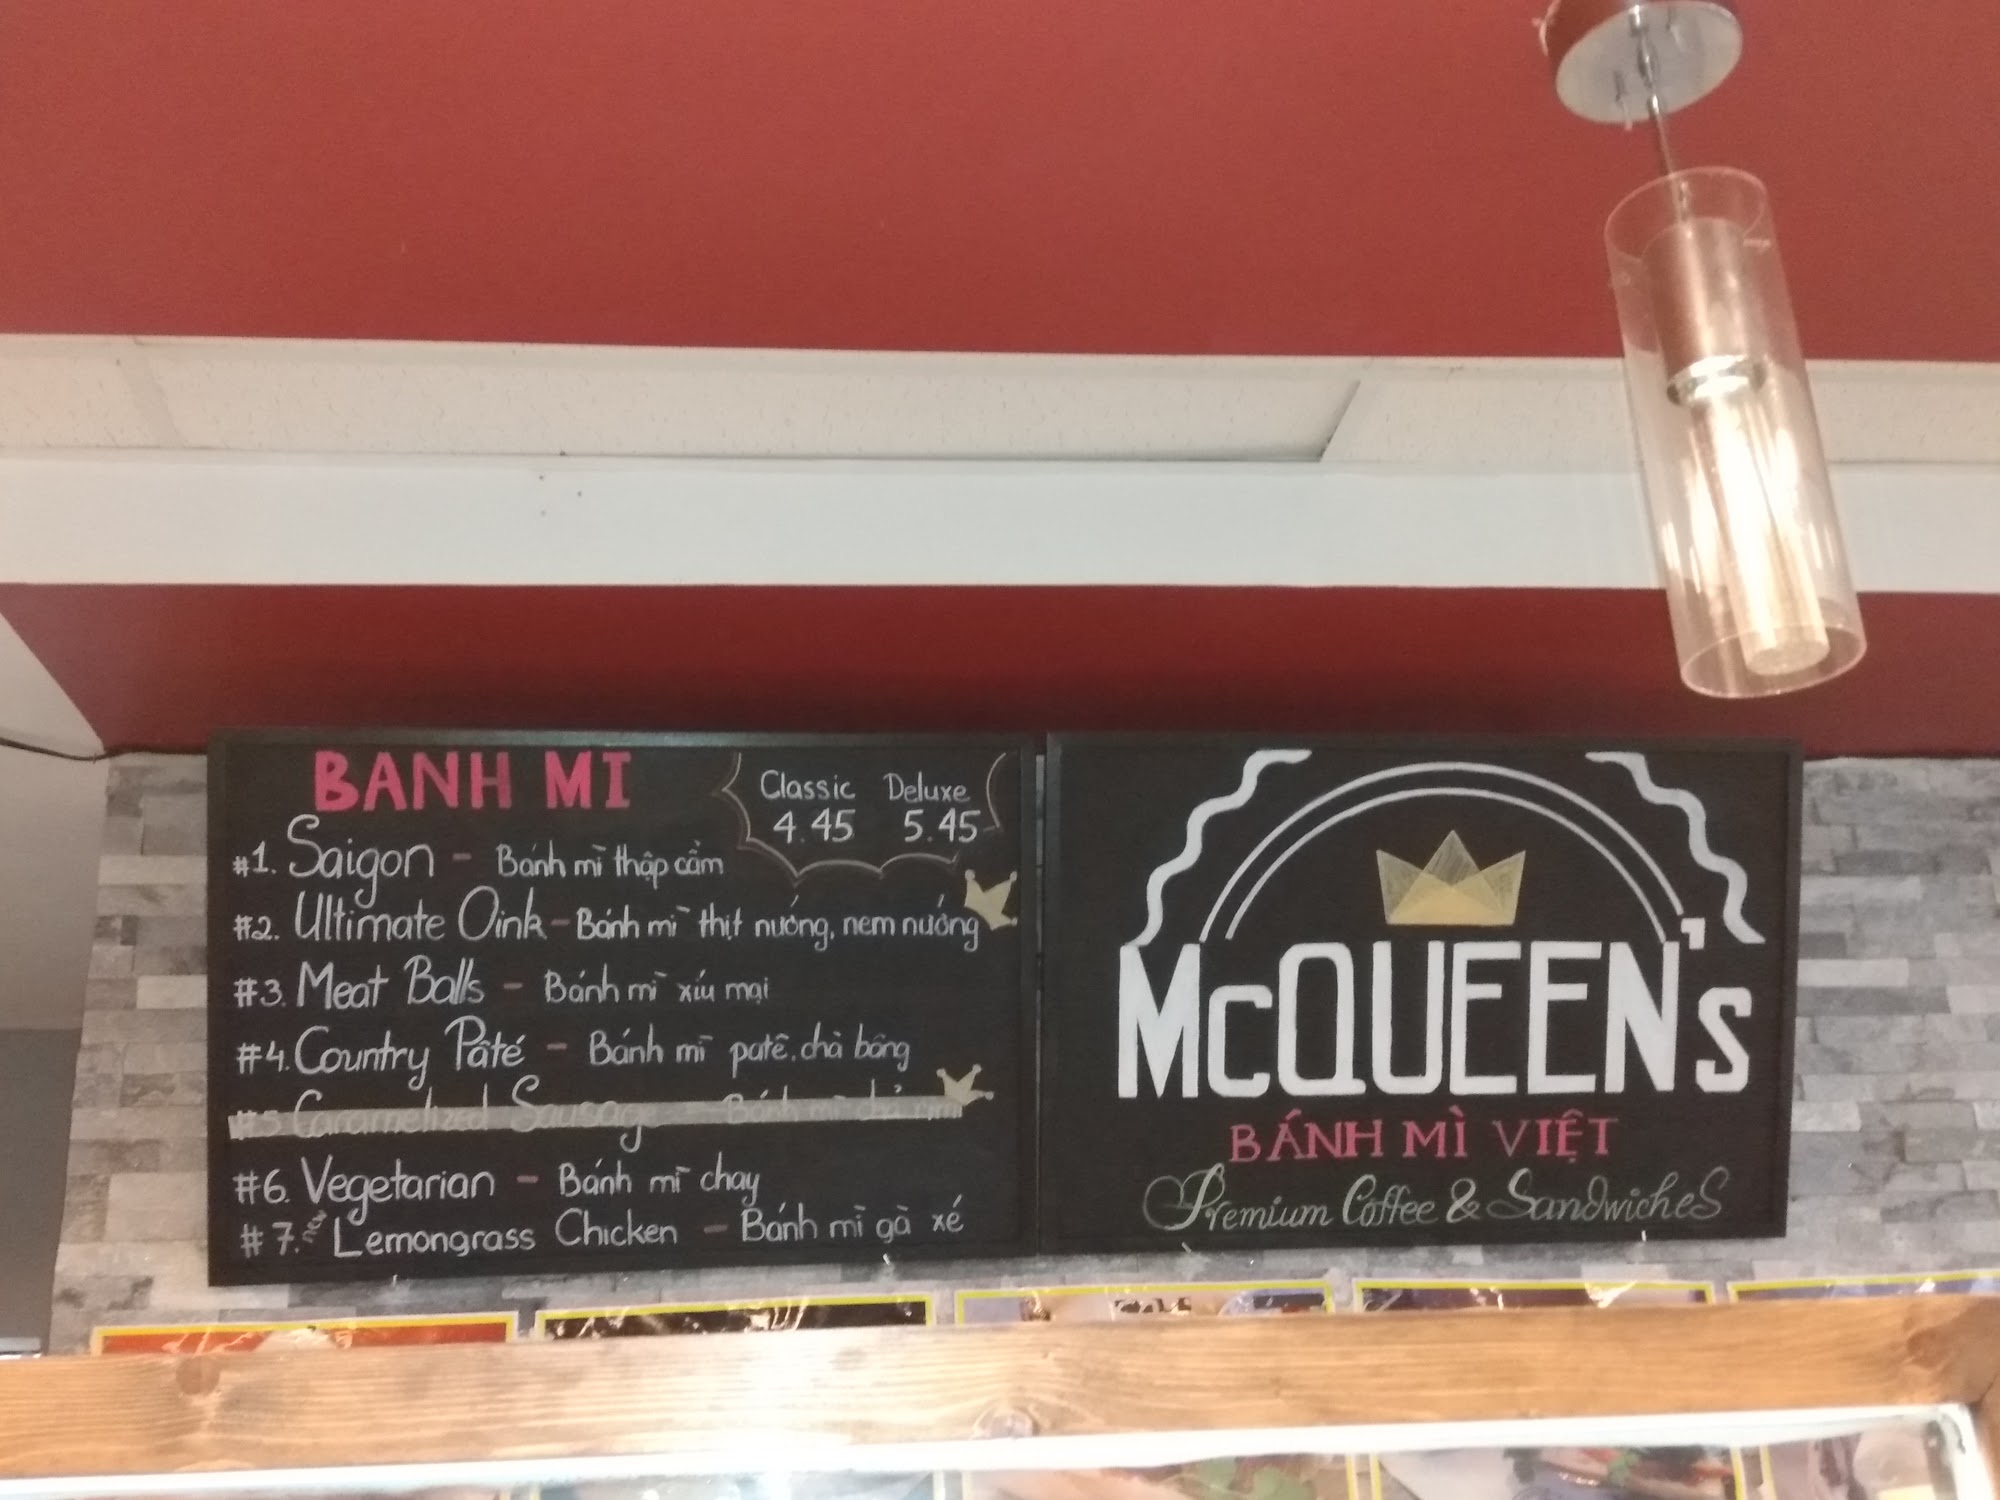 BANH MI
Classic Deluxe
4.45 5.45
#1. Saigon - Bánh mì thập cẩm
#2. Ultimate Oink - Bánh mì thịt nướng, nem nướng
#3. Meat Balls - Bánh mì xíu mại
#4. Country Pâté - Bánh mì patê, chà bông
#5 Caramelized Sausage - Bánh mì chả
#6. Vegetarian - Bánh mì chay
#7. new Lemongrass Chicken - Bánh mì gà xé
McQUEEN's
BÁNH MÌ VIỆT
Premium Coffee & Sandwiches